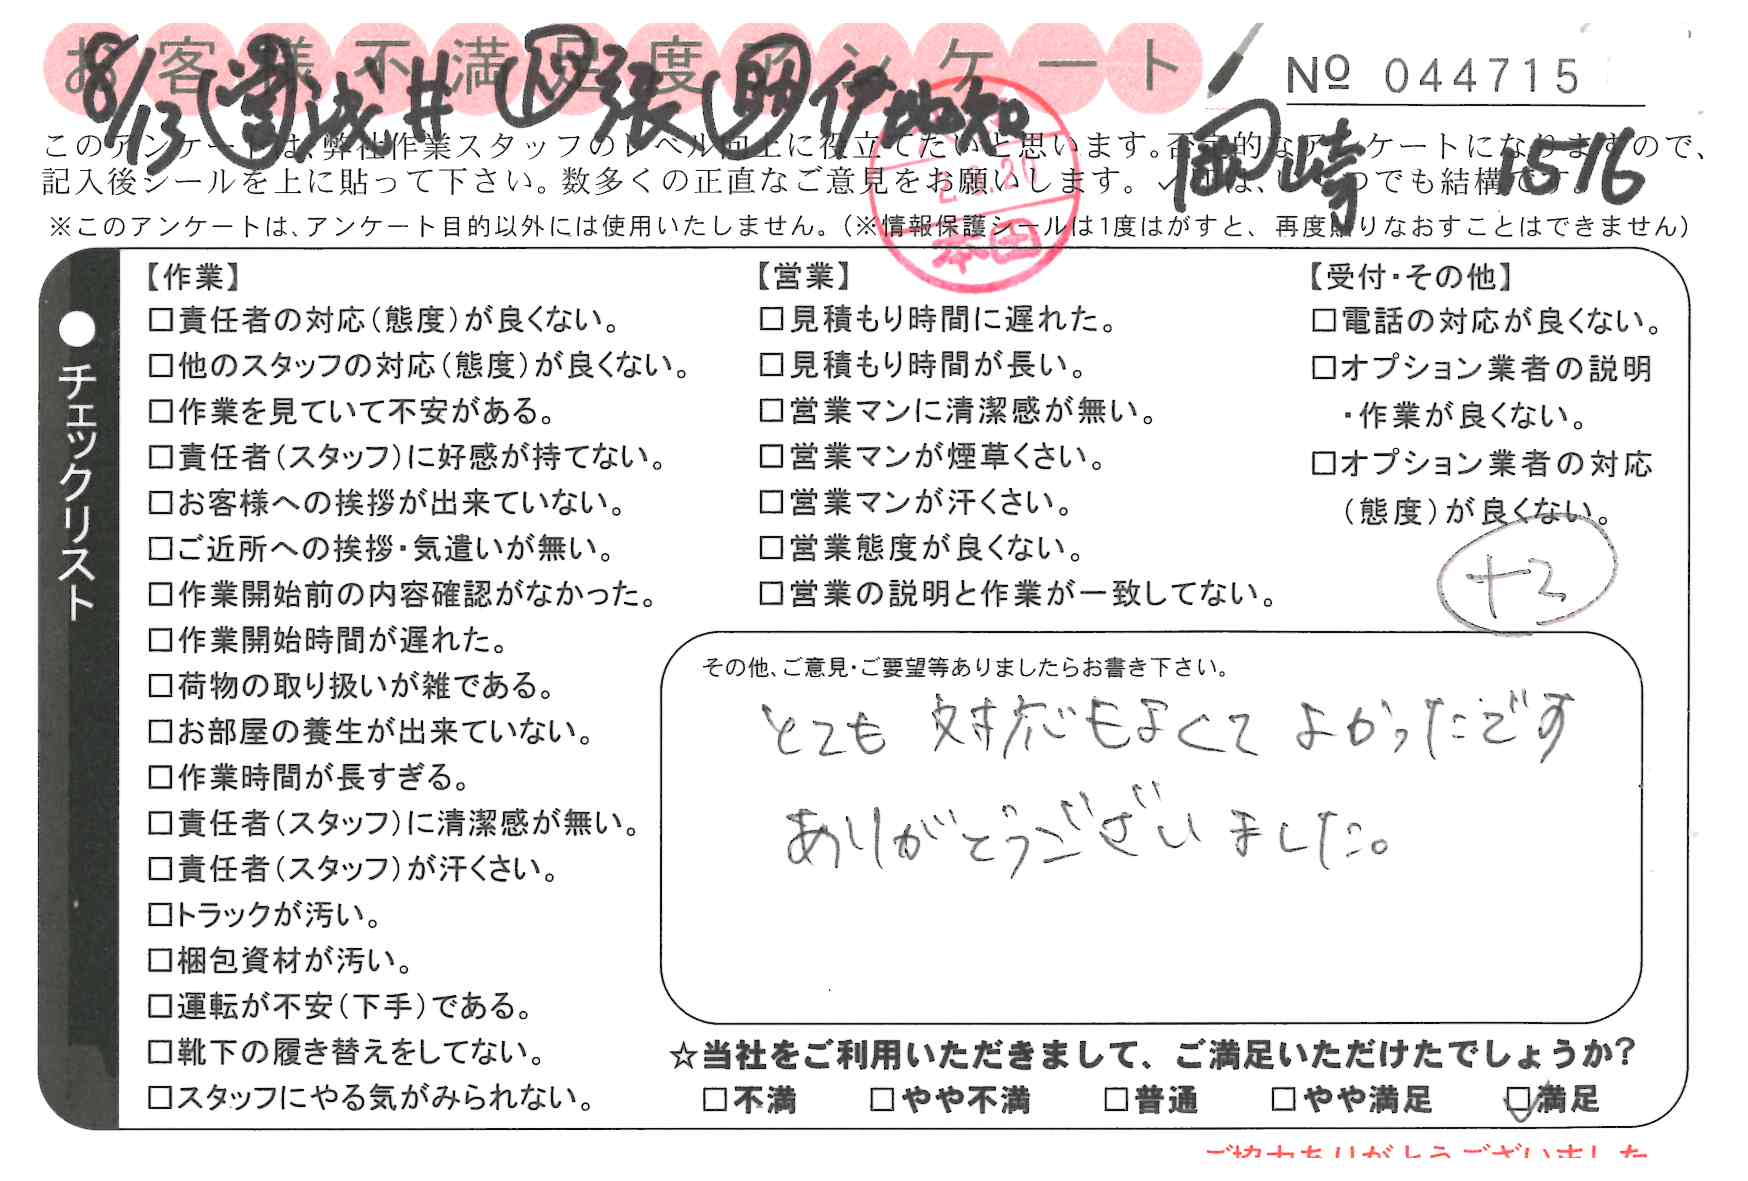 お客様不満足度アンケート
№ 044715
8/13 浅井 張 助 伊地知
岡崎 1516
このアンケートは、弊社作業スタッフのレベル向上に役立てたいと思います。否定的なアンケートになりますので、
記入後シールを上に貼って下さい。数多くの正直なご意見をお願いします。✓印は、いくつでも結構です。
※このアンケートは、アンケート目的以外には使用いたしません。(※情報保護シールは1度はがすと、再度貼りなおすことはできません)
本田
●チェックリスト
【作業】
□責任者の対応(態度)が良くない。
□他のスタッフの対応(態度)が良くない。
□作業を見ていて不安がある。
□責任者(スタッフ)に好感が持てない。
□お客様への挨拶が出来ていない。
□ご近所への挨拶・気遣いが無い。
□作業開始前の内容確認がなかった。
□作業開始時間が遅れた。
□荷物の取り扱いが雑である。
□お部屋の養生が出来ていない。
□作業時間が長すぎる。
□責任者(スタッフ)に清潔感が無い。
□責任者(スタッフ)が汗くさい。
□トラックが汚い。
□梱包資材が汚い。
□運転が不安(下手)である。
□靴下の履き替えをしてない。
□スタッフにやる気がみられない。
【営業】
□見積もり時間に遅れた。
□見積もり時間が長い。
□営業マンに清潔感が無い。
□営業マンが煙草くさい。
□営業マンが汗くさい。
□営業態度が良くない。
□営業の説明と作業が一致してない。
【受付・その他】
□電話の対応が良くない。
□オプション業者の説明
・作業が良くない。
□オプション業者の対応
(態度)が良くない。
+3
その他、ご意見・ご要望等ありましたらお書き下さい。
とても対応もよくてよかったです
ありがどうございました。
☆当社をご利用いただきまして、ご満足いただけたでしょうか?
□不満 □やや不満 □普通 □やや満足 ☑満足
ご協力ありがとうございました